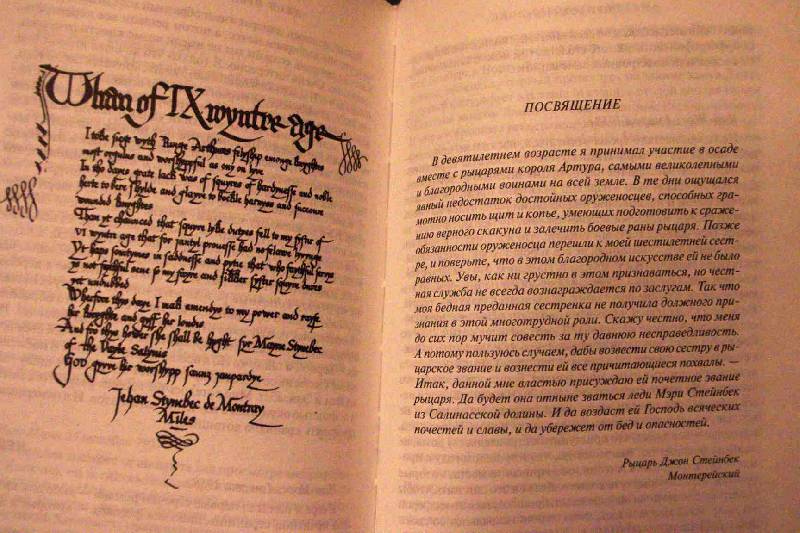 Whan of IX wyntre age
I toke siege wyth Kinge Arthurs felyship emonge knyghtes
most orgulus and worshyppful as ony on lyve
In tho dayes grate lack was of squyres of hardynesse and noble
herte to bere shylde and glayve to bockle harnyss and succoure
wounded knyghtes
Than yt chaunced that squyre lyke dutyes fell to my systir of
vi wyntre age that for jantyl prouesse had no felawe lyvynge
Yt haps somtymes in saddnesse and pytie that who faythful servys
ys not faythful sene so my fayre and siker syster squyre dures
yet undubbed
Wherfore thys daye I mak amendys to my power and rayse
hir knyghte and gyff hir loudis
And fro thys hower she shall be hyght Syr Mayrie Stynebec
of the Vayle Salynis
God gyve hir worshypp saunz jaupardye
Jehan Stynebec de Montray
Miles
ПОСВЯЩЕНИЕ
В девятилетнем возрасте я принимал участие в осаде
вместе с рыцарями короля Артура, самыми великолепными
и благородными воинами на всей земле. В те дни ощущался
явный недостаток достойных оруженосцев, способных гра-
мотно носить щит и копье, умеющих подготовить к сраже-
нию верного скакуна и залечить боевые раны рыцаря. Позже
обязанности оруженосца перешли к моей шестилетней сест-
ре, и поверьте, что в этом благородном искусстве ей не было
равных. Увы, как ни грустно в этом признаваться, но чест-
ная служба не всегда вознаграждается по заслугам. Так что
моя бедная преданная сестренка не получила должного при-
знания в этой многотрудной роли. Скажу честно, что меня
до сих пор мучит совесть за ту давнюю несправедливость.
А потому пользуюсь случаем, дабы возвести свою сестру в ры-
царское звание и вознести ей все причитающиеся похвалы. —
Итак, данной мне властью присуждаю ей почетное звание
рыцаря. Да будет она отныне зваться леди Мэри Стейнбек
из Салинасской долины. И да воздаст ей Господь всяческих
почестей и славы, и да убережет от бед и опасностей.
Рыцарь Джон Стейнбек
Монтерейский